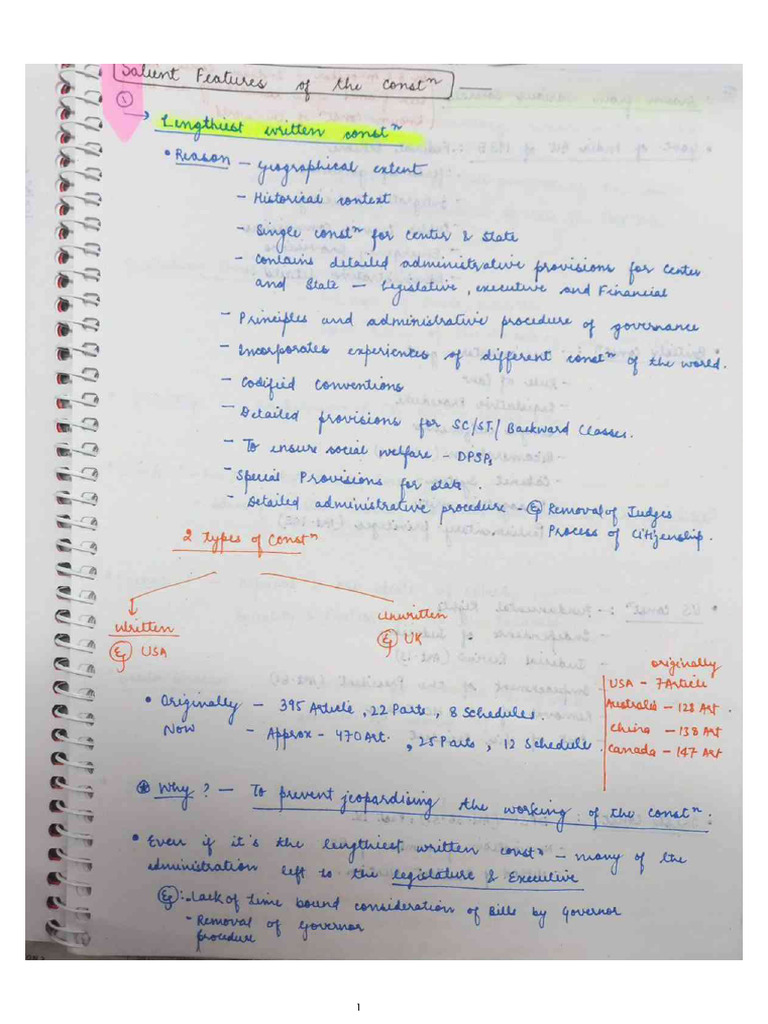 Salient Features of the constⁿ
①
→ Lengthiest written constⁿ
• Reason – Geographical extent
- Historical context
- Single constⁿ for center & state
- contains detailed administrative provisions for center
and State – Legislative, executive and Financial
- Principles and administrative procedure of governance
- Incorporates experiences of different constⁿ of the world.
- Codified conventions
- Detailed provisions for SC/ST/ Backward Classes.
- To ensure social welfare – DPSPs
- Special Provisions for state.
- Detailed administrative procedure – Eg Removal of Judges
Process of citizenship.
2 types of constⁿ
written
Eg USA
unwritten
Eg UK
originally
USA – 7 Article
Australia – 128 Art
China – 138 Art
Canada – 147 Art
• Originally – 395 Article, 22 Parts, 8 Schedules.
Now - Approx – 470 Art., 25 Parts, 12 Schedule
Why? – To prevent jeopardising the working of the constⁿ.
• Even if it's the lengthiest written constⁿ – many of the
administration left to the legislature & Executive
Eg:- Lack of time bound consideration of Bills by Governor
- Removal of Governor
procedure
1